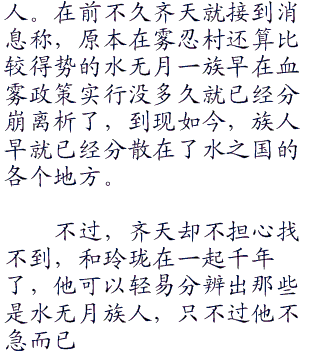 人。在前不久齐天就接到消
息称，原本在雾忍村还算比
较得势的水无月一族早在血
雾政策实行没多久就已经分
崩离析了，到现如今，族人
早就已经分散在了水之国的
各个地方。
不过，齐天却不担心找
不到，和玲珑在一起千年
了，他可以轻易分辨出那些
是水无月族人，只不过他不
急而已